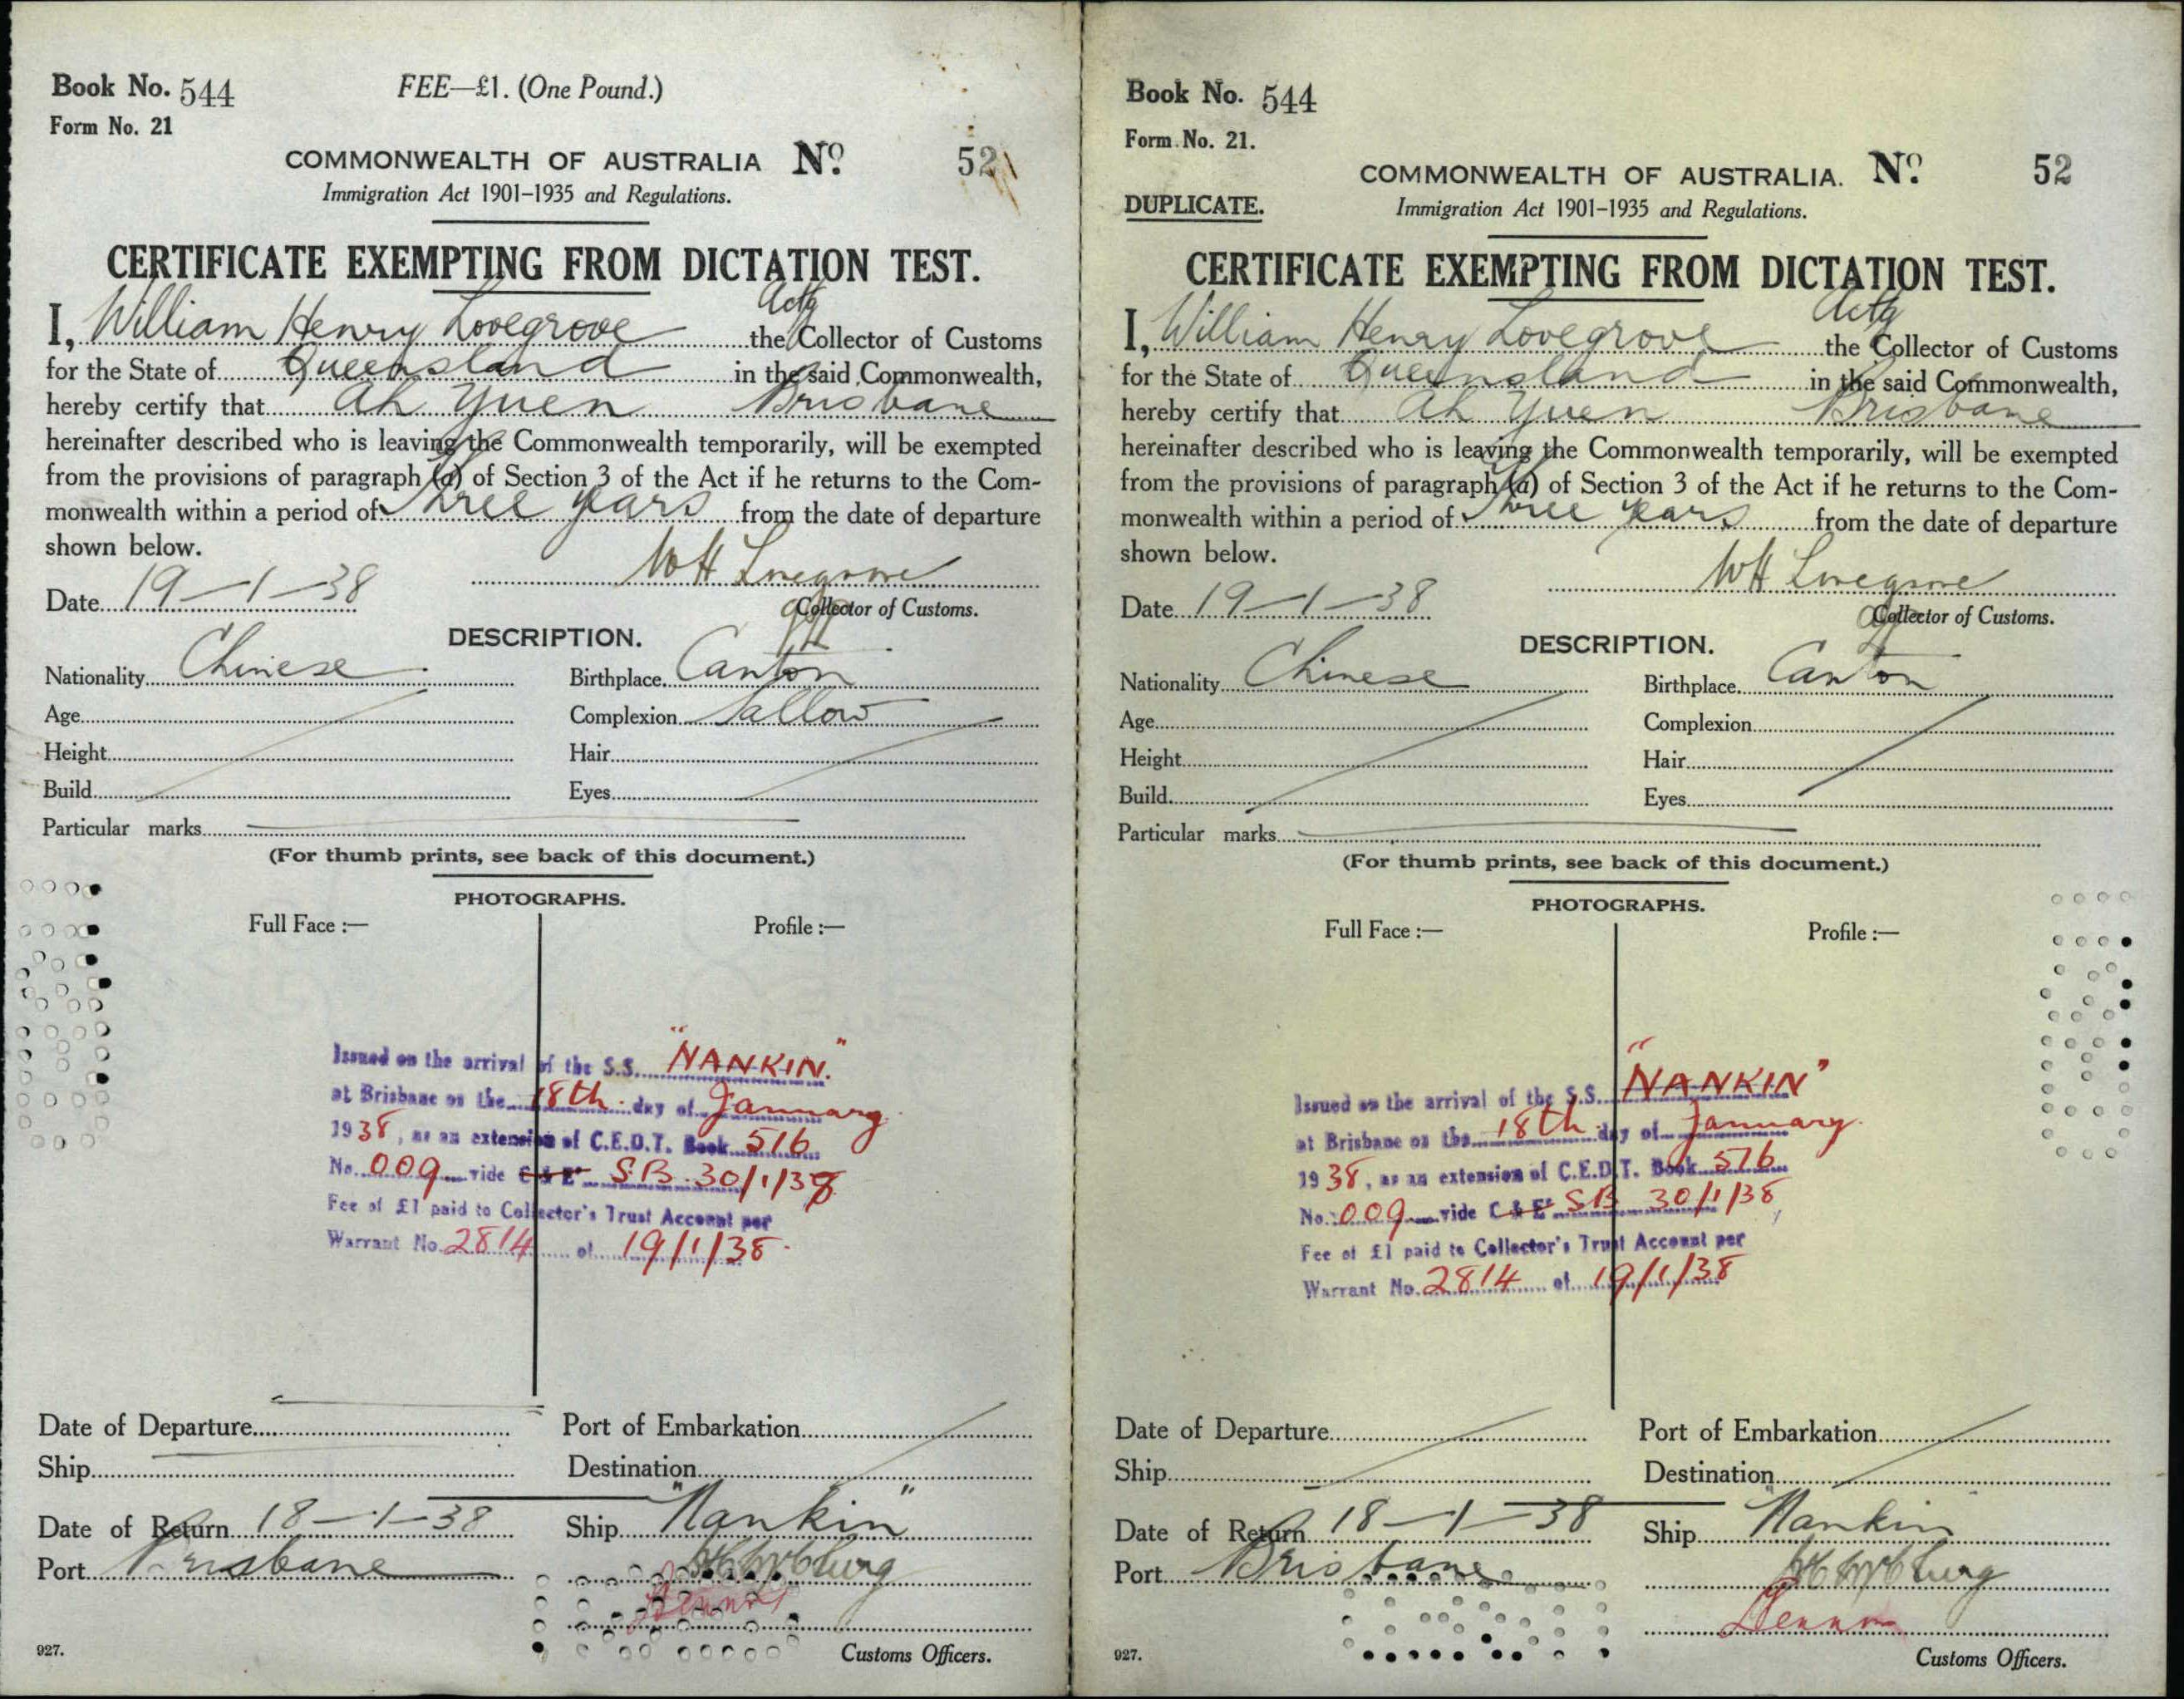 Book No. 544
FEE—£1. (One Pound.)
Form No. 21
COMMONWEALTH OF AUSTRALIA No. 52
Immigration Act 1901–1935 and Regulations.
CERTIFICATE EXEMPTING FROM DICTATION TEST.
Actg
I, William Henry Lovegrove the Collector of Customs
for the State of Queensland in the said Commonwealth,
hereby certify that Ah Yuen Brisbane
hereinafter described who is leaving the Commonwealth temporarily, will be exempted
from the provisions of paragraph (a) of Section 3 of the Act if he returns to the Com-
monwealth within a period of Three years from the date of departure
shown below.
WH Lovegrove
Date 19–1–38
Collector of Customs.
DESCRIPTION.
Nationality Chinese Birthplace Canton
Age Complexion Sallow
Height Hair
Build Eyes
Particular marks
(For thumb prints, see back of this document.)
PHOTOGRAPHS.
Full Face :— Profile :—
Issued on the arrival of the S.S. "NANKIN."
at Brisbane on the 18th day of January
1938, as an extension of C.E.D.T. Book 516
No. 009 vide C & E S.B. 30/1/38
Fee of £1 paid to Collector's Trust Account per
Warrant No. 2814 of 19/1/38.
Date of Departure Port of Embarkation
Ship Destination
Date of Return 18–1–38 Ship "Nankin"
Port Brisbane
927.
Customs Officers.
Book No. 544
Form No. 21.
COMMONWEALTH OF AUSTRALIA. No. 52
DUPLICATE.
Immigration Act 1901–1935 and Regulations.
CERTIFICATE EXEMPTING FROM DICTATION TEST.
Actg
I, William Henry Lovegrove the Collector of Customs
for the State of Queensland in the said Commonwealth,
hereby certify that Ah Yuen Brisbane
hereinafter described who is leaving the Commonwealth temporarily, will be exempted
from the provisions of paragraph (a) of Section 3 of the Act if he returns to the Com-
monwealth within a period of Three years from the date of departure
shown below.
WH Lovegrove
Date 19–1–38
Collector of Customs.
DESCRIPTION.
Nationality Chinese Birthplace Canton
Age Complexion
Height Hair
Build Eyes
Particular marks
(For thumb prints, see back of this document.)
PHOTOGRAPHS.
Full Face :— Profile :—
Issued on the arrival of the S.S. "NANKIN"
at Brisbane on the 18th day of January
1938, as an extension of C.E.D.T. Book 516
No. 009 vide C & E SB 30/1/38,
Fee of £1 paid to Collector's Trust Account per
Warrant No. 2814 of 19/1/38
Date of Departure Port of Embarkation
Ship Destination
Date of Return 18–1–38 Ship "Nankin
Port Brisbane
927.
Customs Officers.